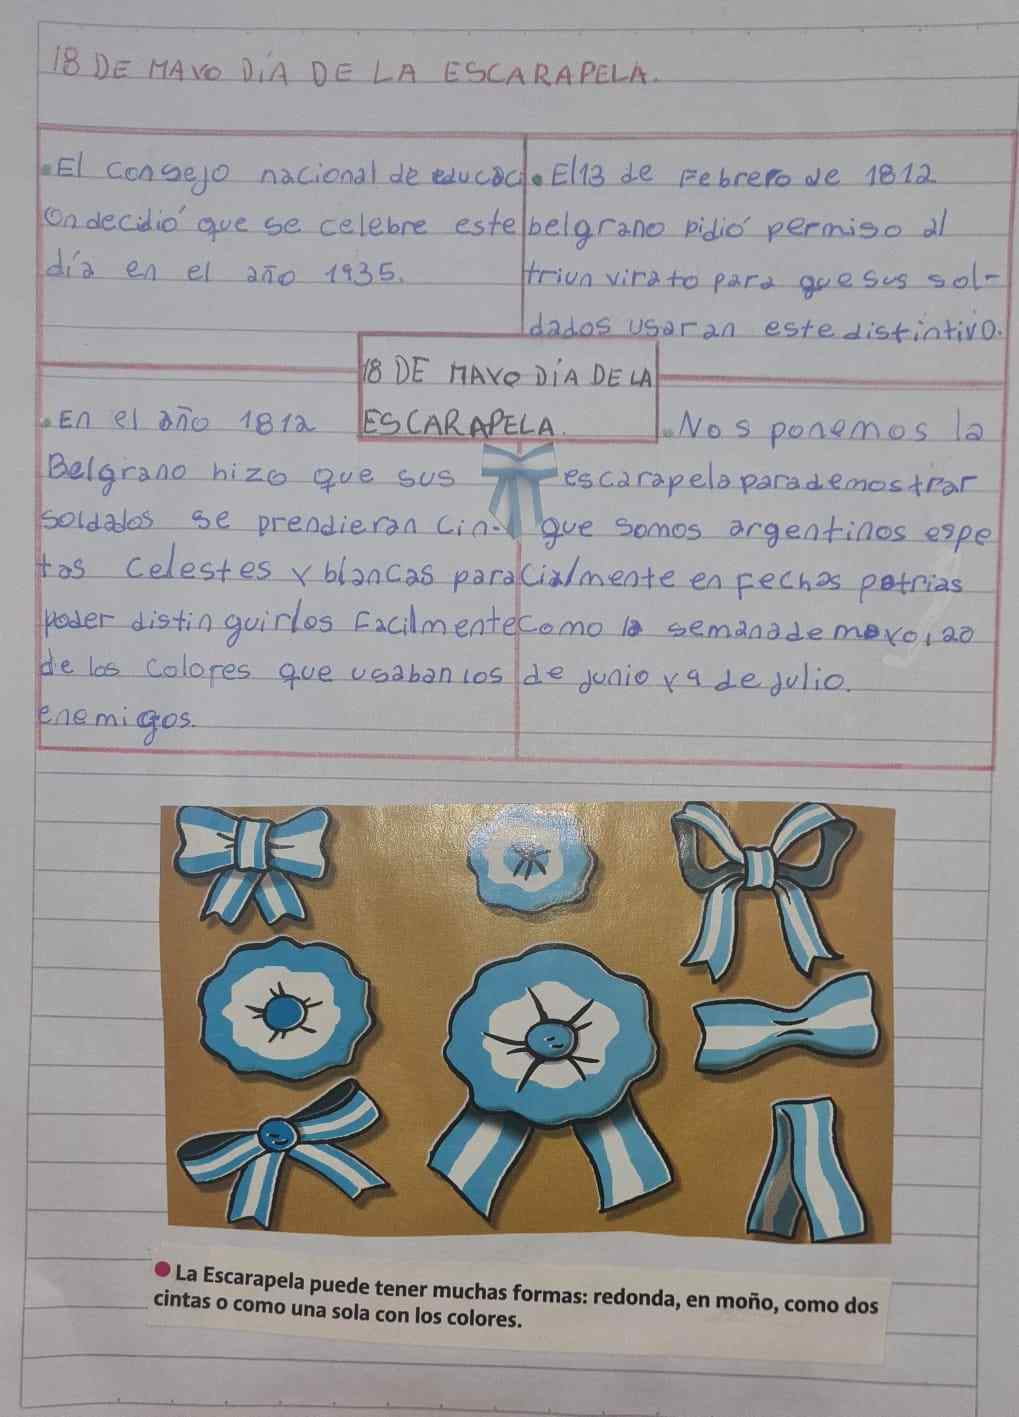 18 DE MAYO DÍA DE LA ESCARAPELA.
• El consejo nacional de educaci
ón decidió que se celebre este
día en el año 1935.
• El 13 de Febrero de 1812
belgrano pidió permiso al
triunvirato para que sus sol-
dados usaran este distintivo.
18 DE MAYO DÍA DE LA
ESCARAPELA.
• En el año 1812
Belgrano hizo que sus
soldados se prendieran cin-
tas celestes y blancas para
poder distinguirlos facilmente
de los colores que usaban los
enemigos.
• Nos ponemos la
escarapela para demostrar
que somos argentinos espe
cialmente en fechas patrias
como la semana de mayo, 20
de junio y 9 de julio.
• La Escarapela puede tener muchas formas: redonda, en moño, como dos
cintas o como una sola con los colores.